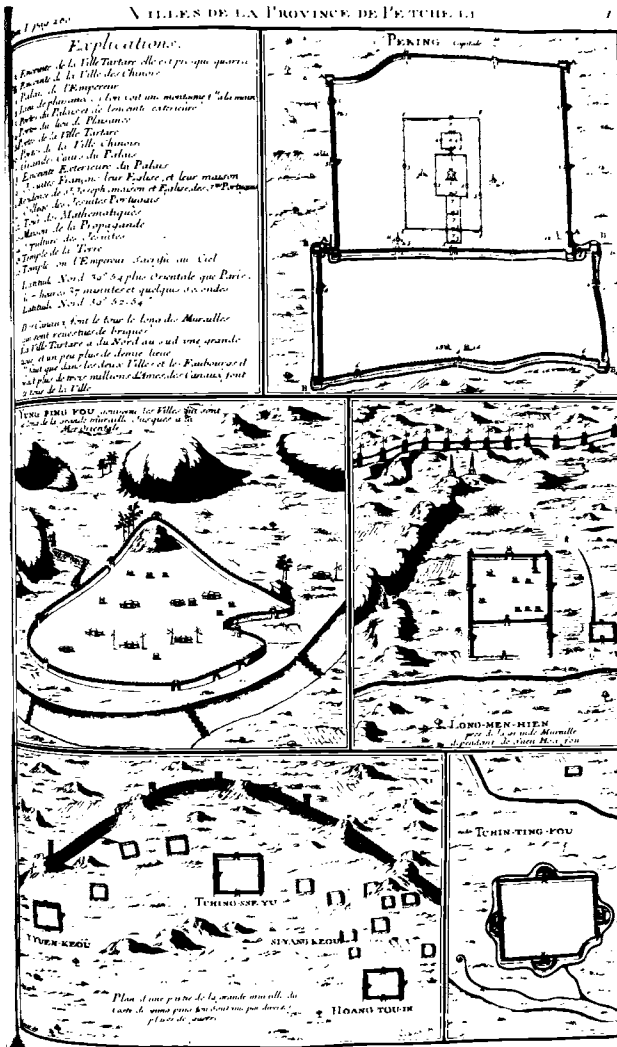 VILLES DE LA PROVINCE DE PETCHELI
I pag. 260
Explications.
Enceinte de la Ville Tartare elle est presque quarrée
Enceinte de la Ville des Chinois
Palais de l'Empereur
Lieu de plaisance
Portes du Palais et de l'enceinte exterieure
Porte du lieu de Plaisance
Portes de la Ville Tartare
Portes de la Ville Chinoise
Grande Cours du Palais
Enceinte Exterieure du Palais
Jesuites François leur Eglise, et leur maison
Residence de St. Joseph, maison et Eglise des Portugais
College des Jesuites Portugais
Tour des Mathematiques
Maison de la Propagande
Sepulture des Jesuites
Temple de la Terre
Temple ou l'Empereur Sacrifie au Ciel
plus Orientale que Paris
heures 37 minutes et quelques secondes
Latitude Nord 39° 52' 54"
Canaux font le tour le long des Murailles
qui sont revestues de briques
La Ville Tartare a du Nord au sud une grande
lieue et un peu plus de demie lieue
que dans les deux Villes et les Faubourgs il
y a plus de trois millions d'Ames, des Canaux font
le tour de la Ville
PEKING Capitale
YUNG PING FOU gouverne les Villes qui sont
de la grande muraille jusques a la
Mer Orientale
LONG-MEN-HIEN
pres de la grande Muraille
dependant de Suen Hoa fou
TCHING-SSE-YU
YUEN-KEOU
SI-YANG KEOU
HOANG TOU-IN
Plan d'une partie de la grande muraille du
Coste de yung ping fou dont un par diverses
places de guerre
TCHIN-TING-FOU